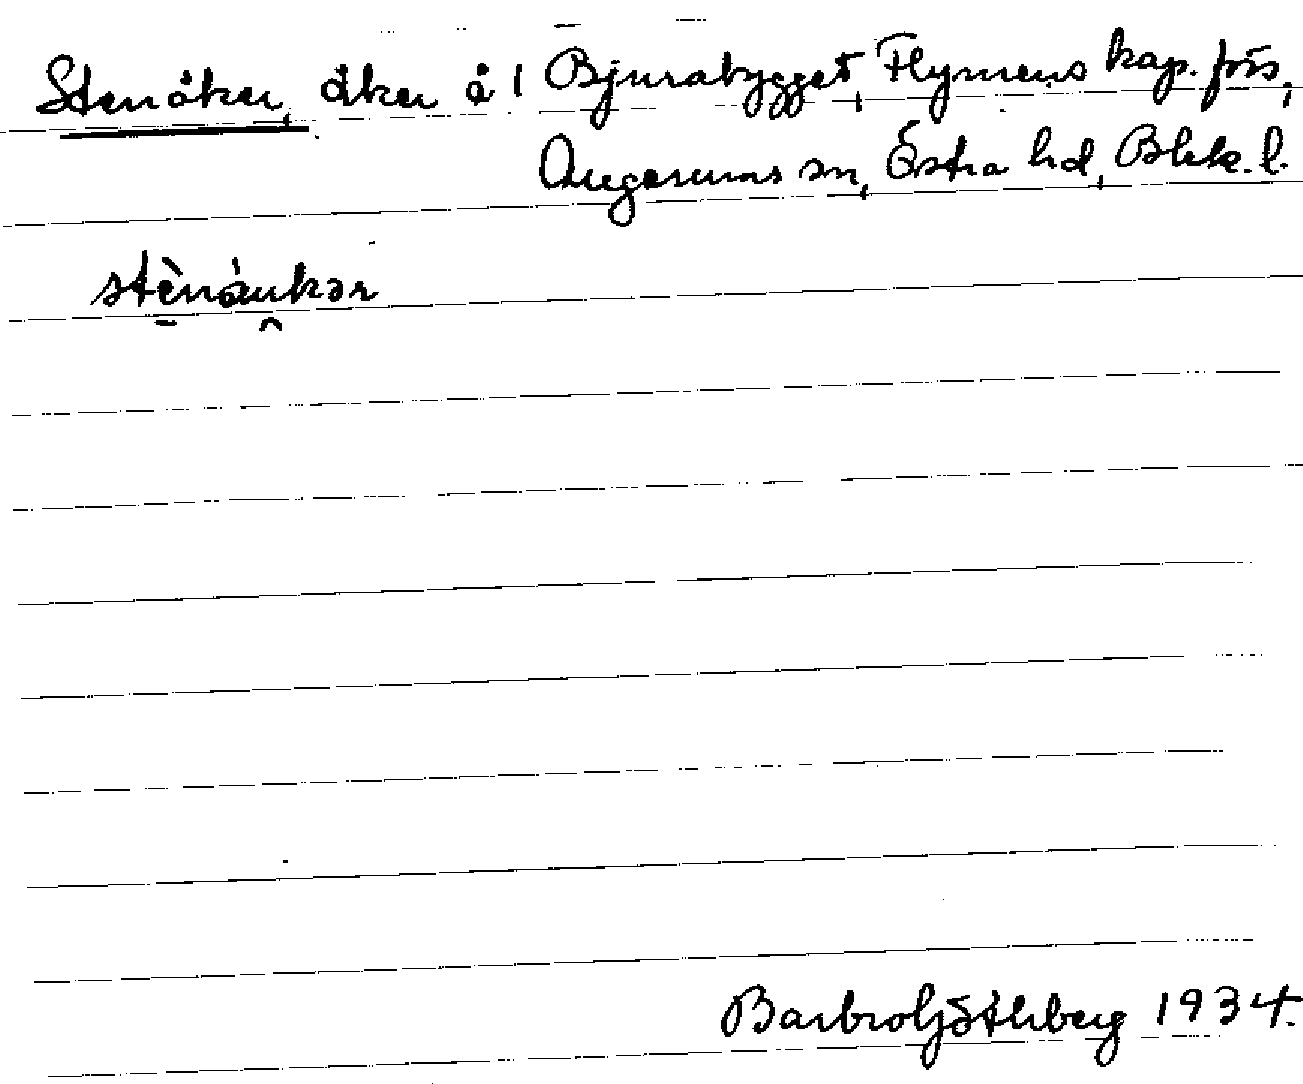 Stenåker, åker å 1 Bjurabygget, Flymens kap. förs,
Augerums sn, Östra hd, Blek. l.
stènàukər
Barbro Ljöthberg 1934.